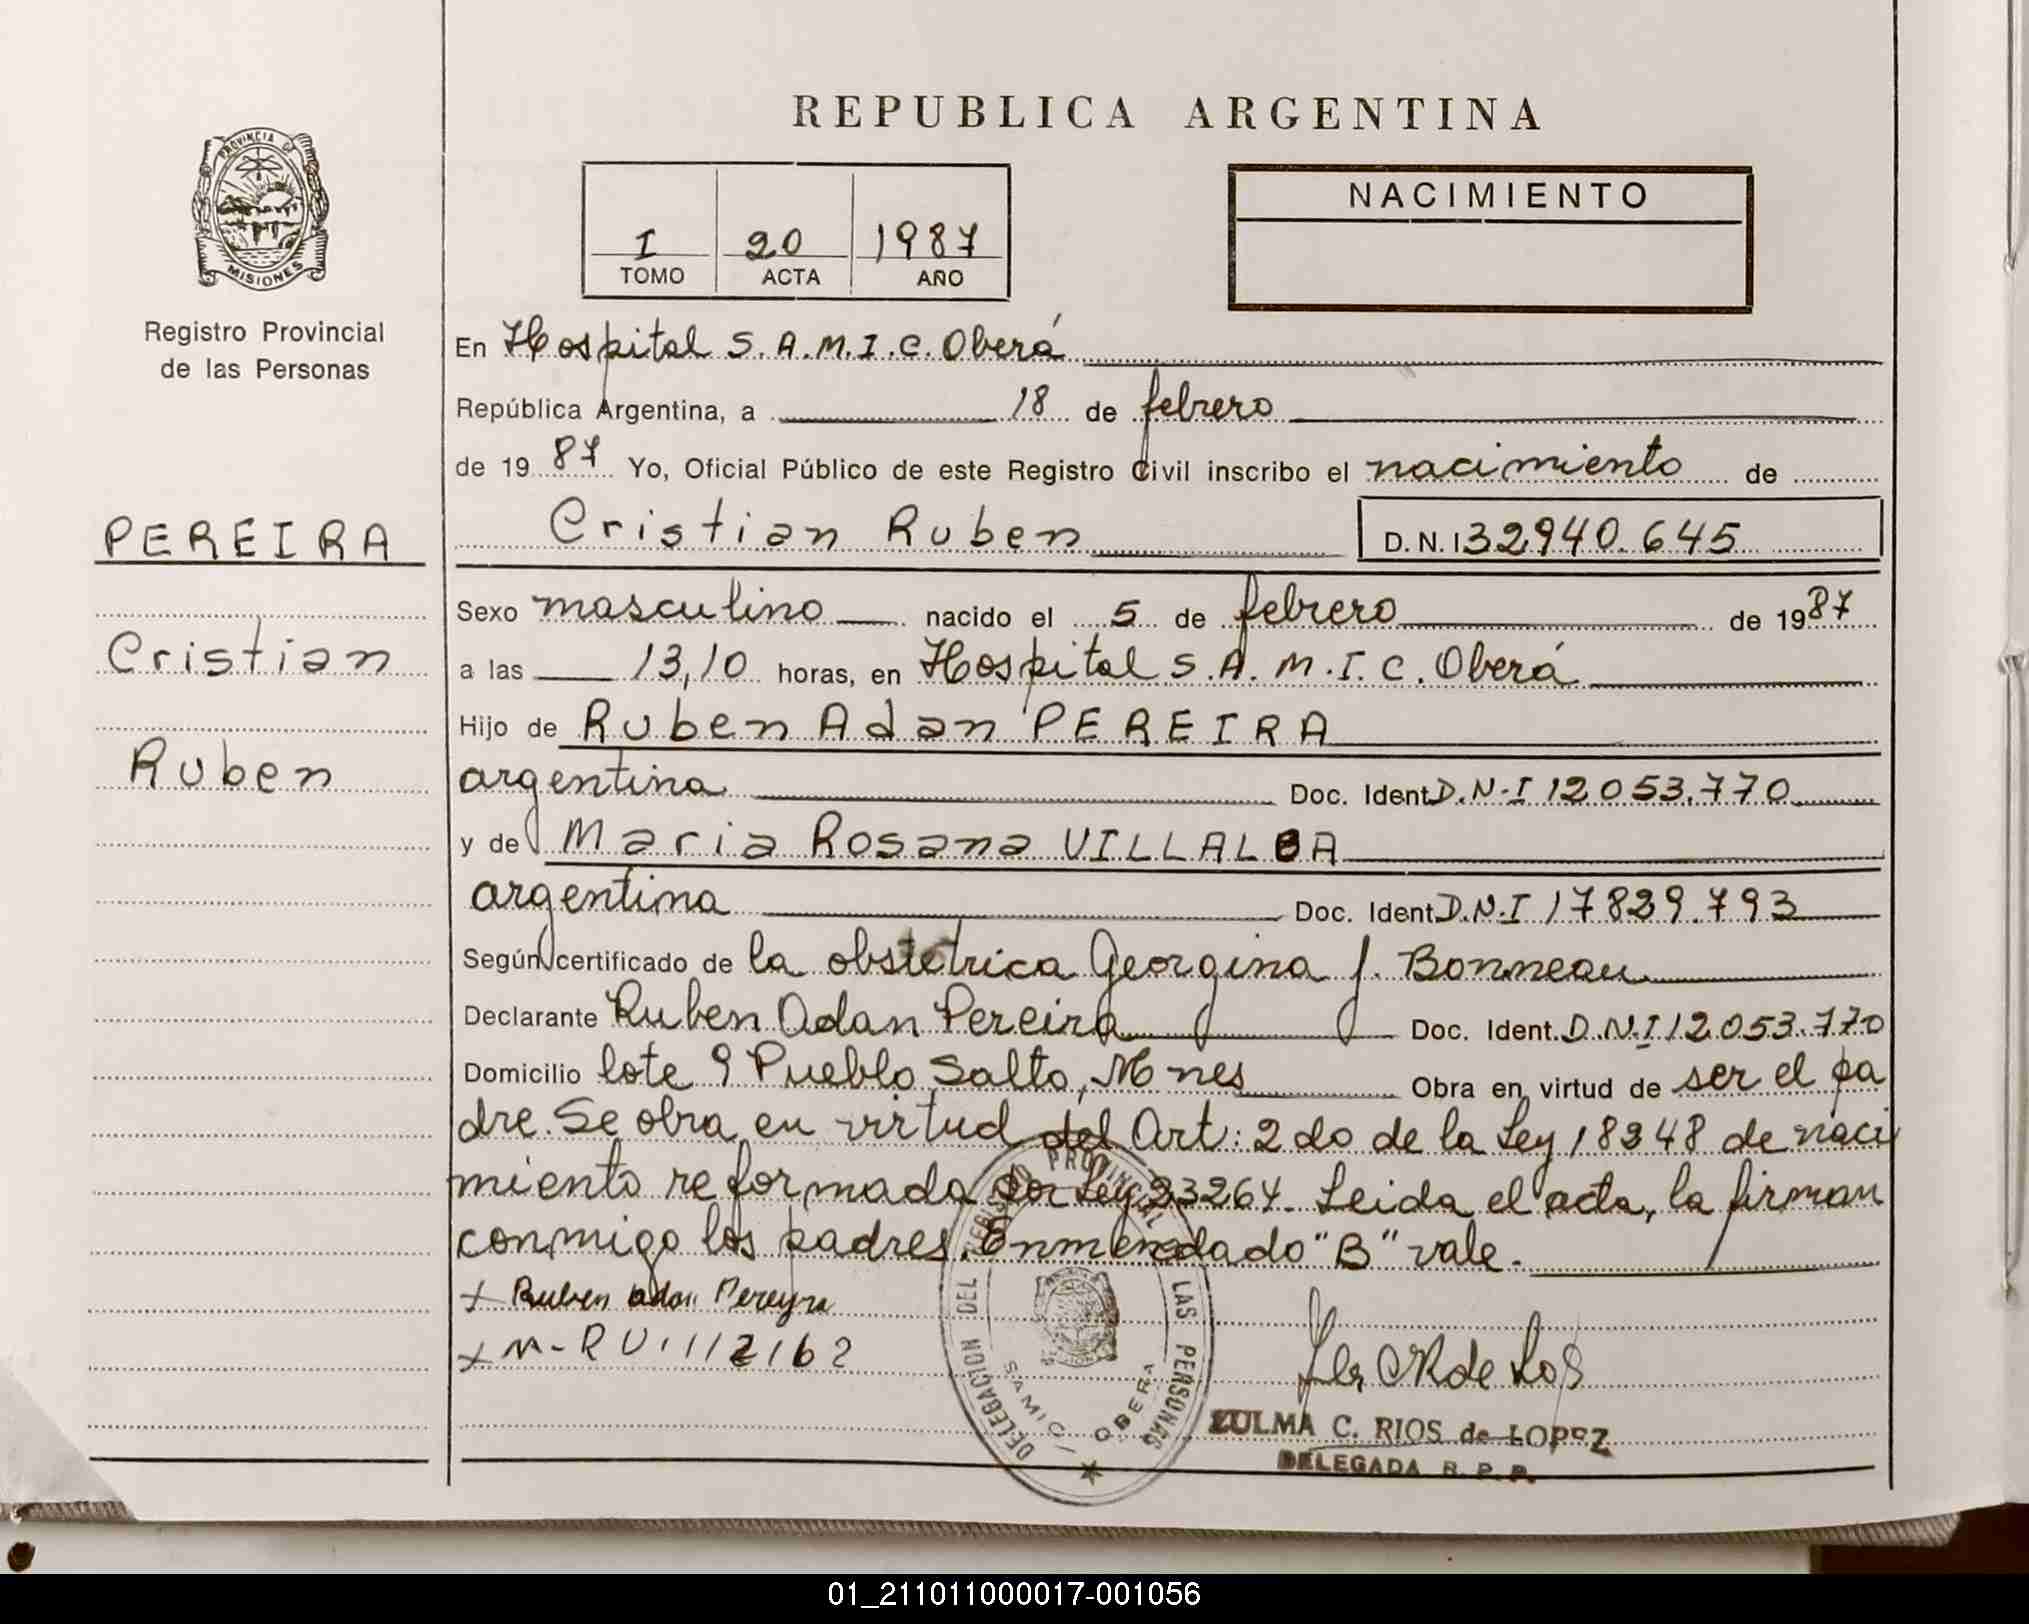 REPUBLICA ARGENTINA
PROVINCIA DE
MISIONES
Registro Provincial
de las Personas
I 20 1987
TOMO ACTA AÑO
NACIMIENTO
En Hospital S.A.M.I.C. Oberá
República Argentina, a 18 de febrero
de 19 87 Yo, Oficial Público de este Registro Civil inscribo el nacimiento de
Cristian Ruben D.N.I 32940.645
PEREIRA
Cristian
Ruben
Sexo masculino nacido el 5 de febrero de 19 87
a las 13,10 horas, en Hospital S.A.M.I.C. Oberá
Hijo de Ruben Adan PEREIRA
argentina Doc. Ident D.N.I 12053.770
y de Maria Rosana VILLALBA
argentina Doc. Ident D.N.I 17829.793
Según certificado de la obstetrica Georgina J. Bonneau
Declarante Ruben Adan Pereira Doc. Ident. D.N.I 12053.770
Domicilio lote 9 Pueblo Salto, Mnes Obra en virtud de ser el pa
dre. Se obra en virtud del Art: 2do de la Ley 18248 de naci
miento reformada por Ley 23264. Leida el acta, la firman
conmigo los padres. Enmendado "B" vale.
+ Ruben adan Pereyra
DELEGACION DEL REGISTRO PROVINCIAL DE LAS PERSONAS
SAMIC / OBERA
ZULMA C. RIOS de LOPEZ
DELEGADA R. P. P.
01_211011000017-001056